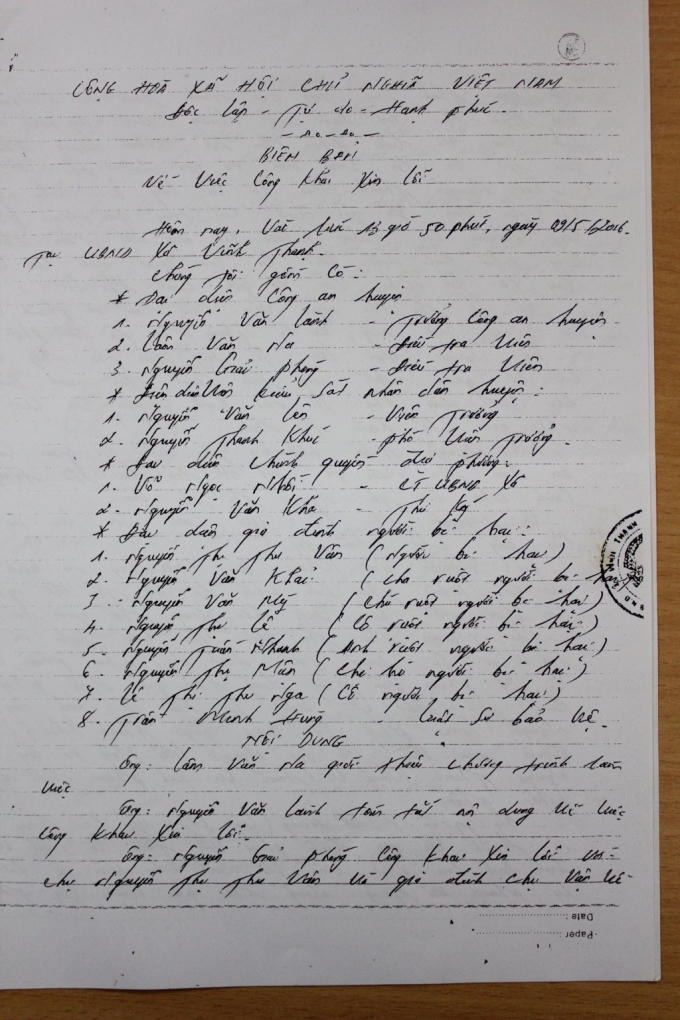 CỘNG HOÀ XÃ HỘI CHỦ NGHĨA VIỆT NAM
Độc lập - Tự do - Hạnh phúc
BIÊN BẢN
Về việc công khai xin lỗi
Hôm nay, vào lúc 13 giờ 50 phút, ngày 09/5/2016.
Tại UBND xã Vĩnh Thạnh.
Chúng tôi gồm có:
* Đại diện Công an huyện
1. Nguyễn Văn Lành - Trưởng Công an huyện.
2. Lâm Văn Na - Điều tra viên
3. Nguyễn Giải Phóng - Điều tra viên
* Đại diện Viện kiểm sát nhân dân huyện:
1. Nguyễn Văn - Viện trưởng
2. Nguyễn Thanh Khúc - Phó Viện trưởng.
* Đại diện chính quyền địa phương:
1. Võ Ngọc - CT UBND xã
2. Nguyễn Văn Kha - Thư ký
* Đại diện gia đình người bị hại:
1. Nguyễn Thị Thu Vân (người bị hại)
2. Nguyễn Văn Khải (cha ruột người bị hại)
3. Nguyễn Văn Mỹ (chú ruột người bị hại)
4. Nguyễn Thị Lễ (cô ruột người bị hại)
5. Nguyễn Tuấn Thanh (anh ruột người bị hại)
6. Nguyễn Thị Mến (chị họ người bị hại)
7. Lê Thị Thu Nga (cô người bị hại)
8. Trần Minh Hùng - luật sư bảo vệ.
NỘI DUNG
Ông: Lâm Văn Na giới thiệu chương trình làm
việc
Ông: Nguyễn Văn Lành tóm tắt nội dung về việc
công khai xin lỗi.
Ông: Nguyễn Giải Phóng công khai xin lỗi
chị Nguyễn Thị Thu Vân và gia đình chị Vân về
Date :
Paper :